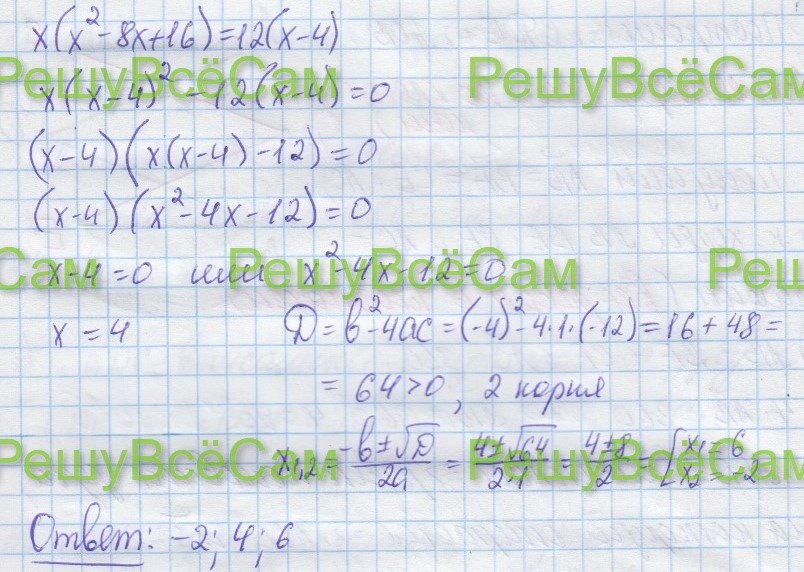 x(x²-8x+16)=12(x-4)
РешуВсёСам РешуВсёСам
x(x-4)²-12(x-4)=0
(x-4)(x(x-4)-12)=0
(x-4)(x²-4x-12)=0
Сам РешуВсёСам Реш
x-4=0 или x²-4x-12=0
x=4 D=b²-4ac=(-4)²-4·1·(-12)=16+48=
=64>0, 2 корня
РешуВсёСам РешуВсёСам
x₁,₂=(-b±√D)/2a=(4±√64)/2·1=(4±8)/2=[x₁=6 x₂=-2
Ответ: -2; 4; 6